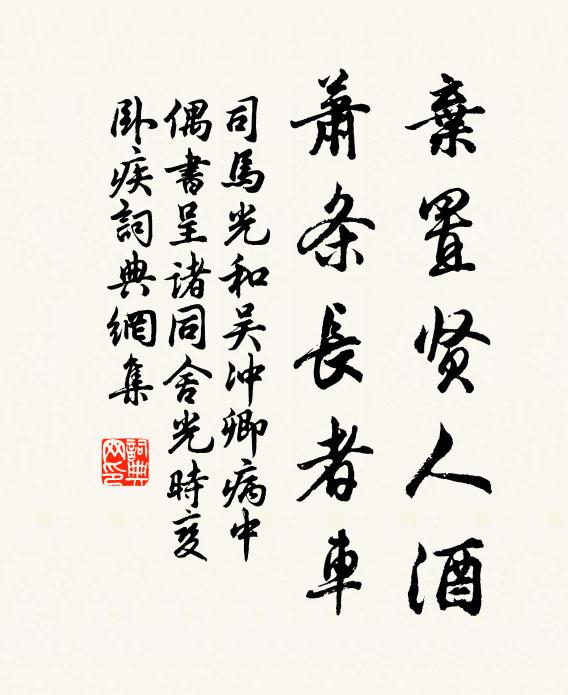 棄置贤人酒
蕭条長者車
司馬光和吴冲卿病中
偶書呈諸同舍光時亦
卧疾詞典網集
詞典
网印